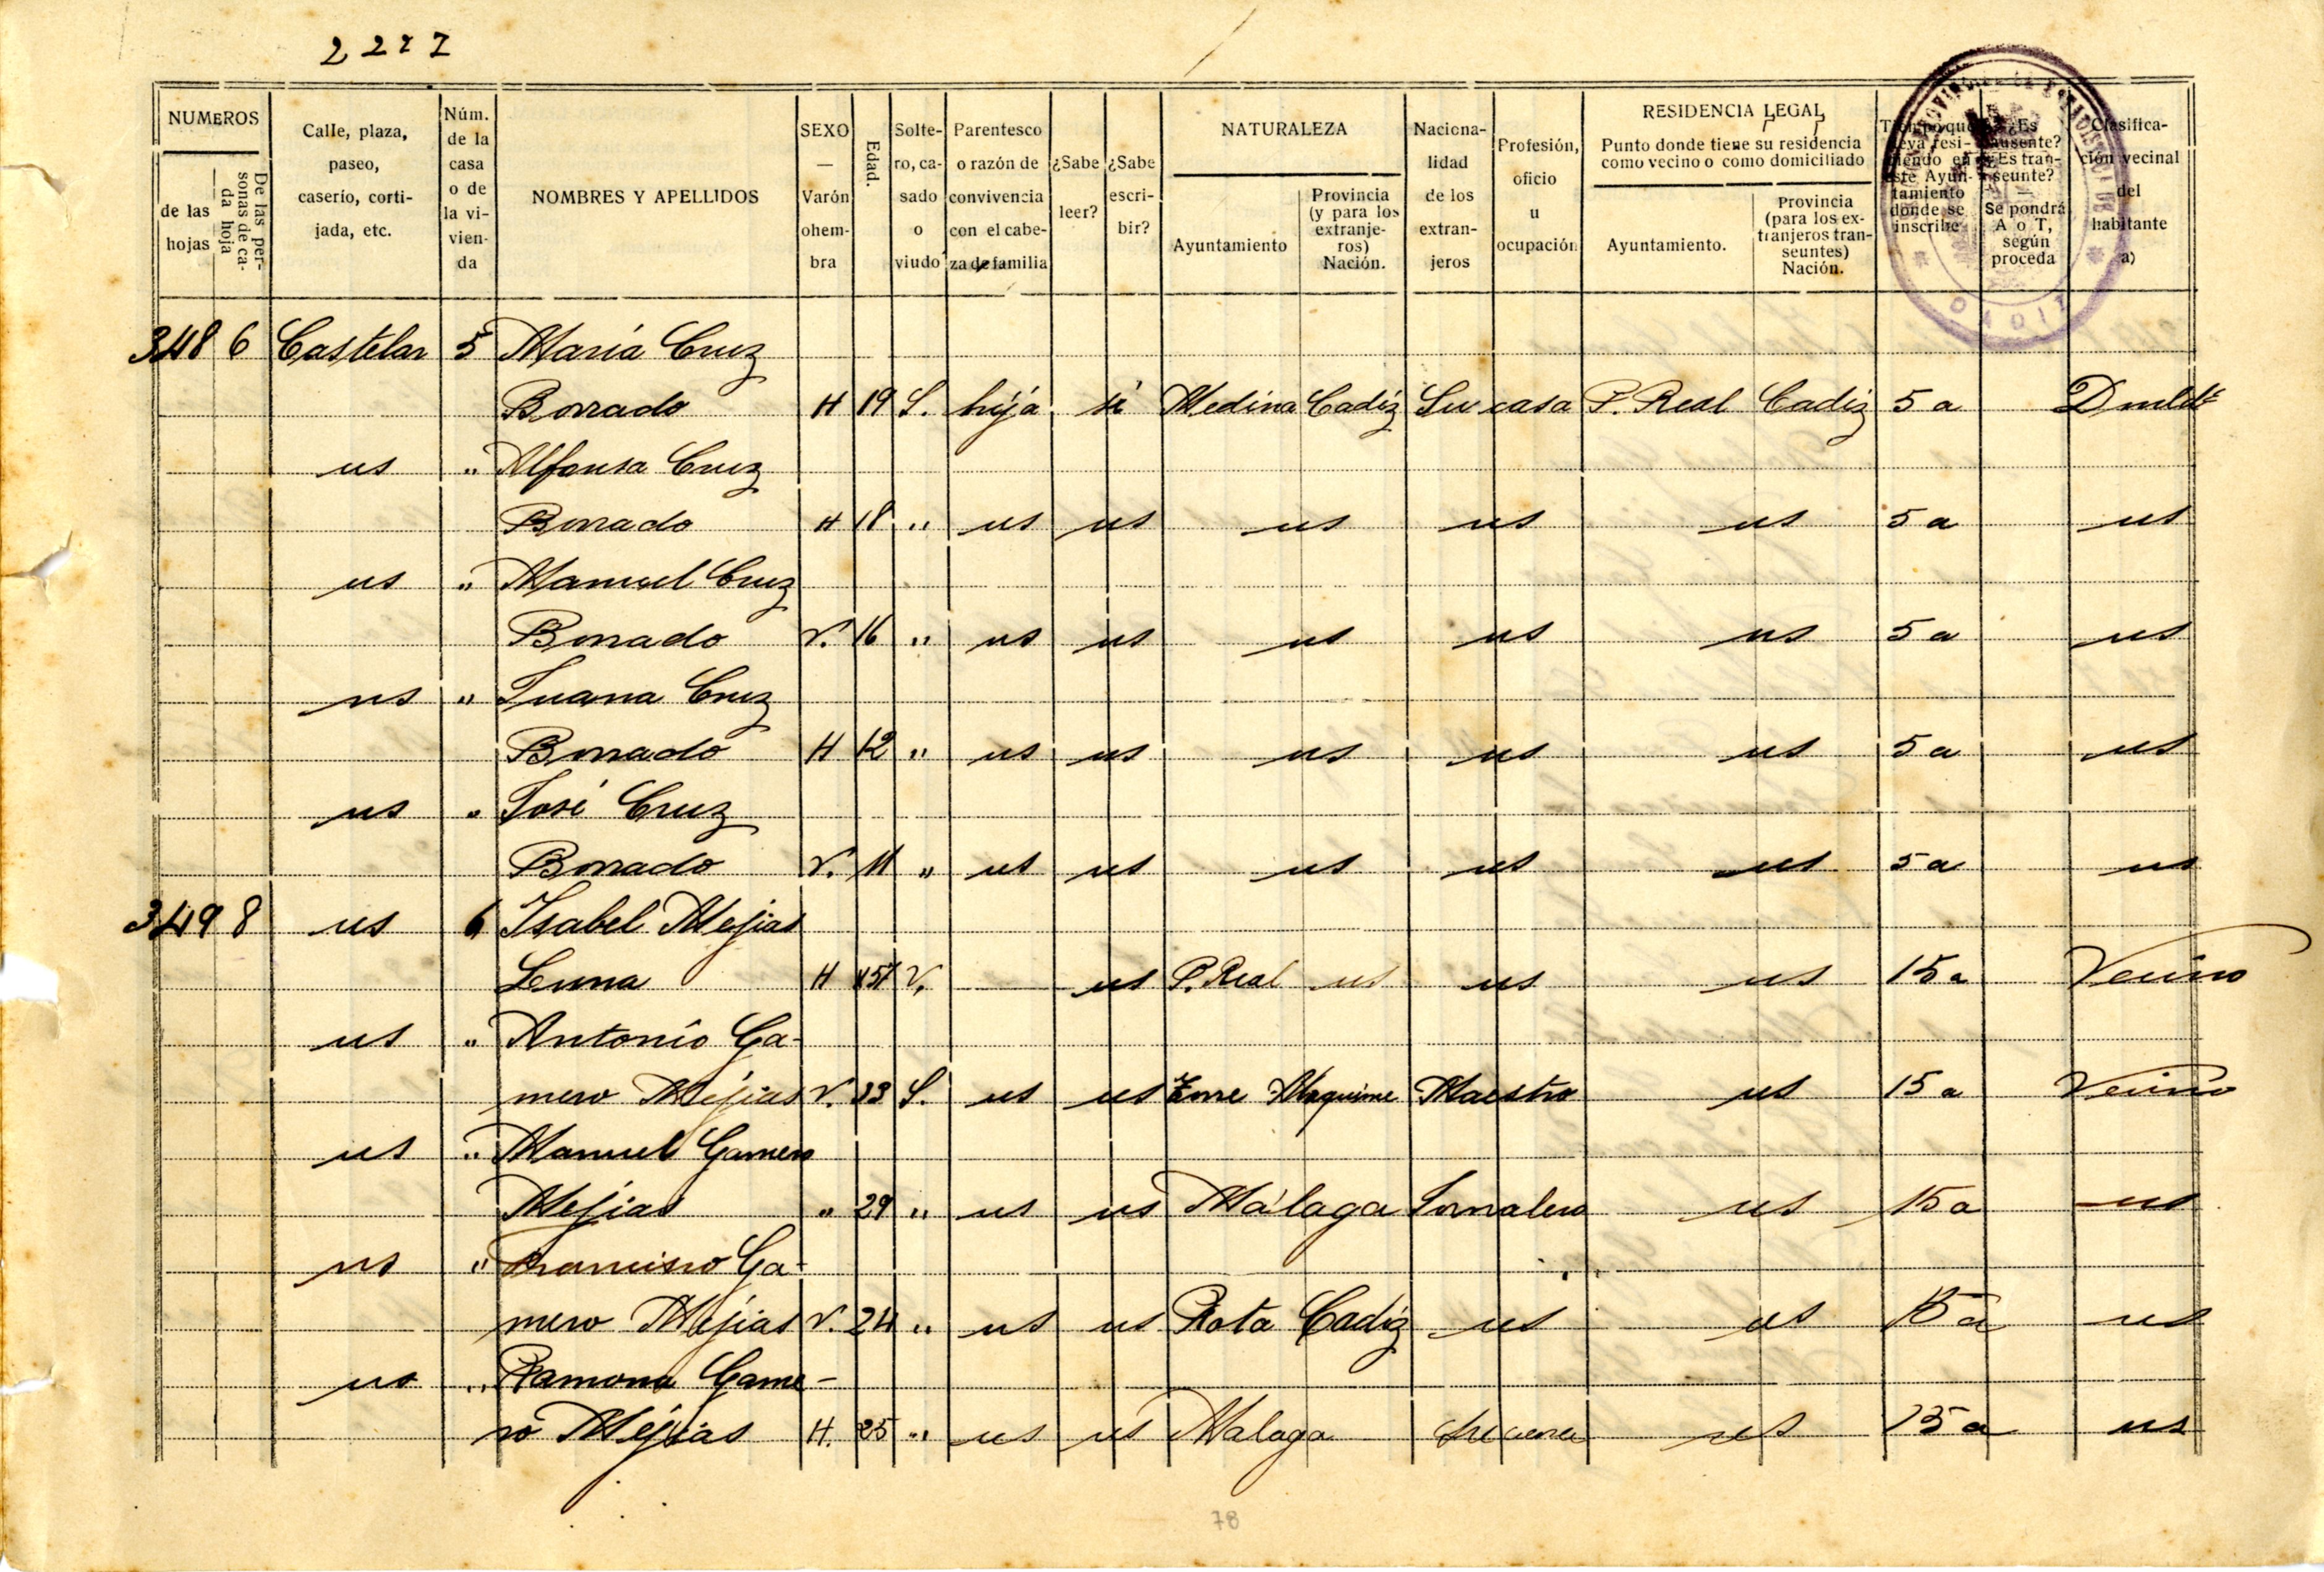 2277
NUMEROS
de las hojas
De las personas de cada hoja
Calle, plaza, paseo, caserío, cortijada, etc.
Núm. de la casa o de la vivienda
NOMBRES Y APELLIDOS
SEXO — Varón o hembra
Edad.
Soltero, casado o viudo
Parentesco o razón de convivencia con el cabeza de familia
¿Sabe leer?
¿Sabe escribir?
NATURALEZA
Ayuntamiento
Provincia (y para los extranjeros) Nación.
Nacionalidad de los extranjeros
Profesión, oficio u ocupación
RESIDENCIA LEGAL
Punto donde tiene su residencia como vecino o como domiciliado
Ayuntamiento.
Provincia (para los extranjeros transeuntes) Nación.
Tiempo que lleva residiendo en este Ayuntamiento donde se inscribe
¿Es ausente? ¿Es transeunte? Se pondrá A o T, según proceda
Clasificación vecinal del habitante a)
CADIZ
348 6 Castelar 5 María Cruz
Borrado H 19 S. hija si Medina Cadiz Su casa P. Real Cadiz 5 a
us " Alfonsa Cruz
Borrado H 18 " us us us us us 5 a us
us " Manuel Cruz
Borrado V. 16 " us us us us us 5 a us
us " Juana Cruz
Borrado H 12 " us us us us us 5 a us
us " José Cruz
Borrado V. 11 " us us us us us 5 a us
349 8 us 6 Isabel Mejias
Luna H V. us P. Real us us us 15 a Vecino
us " Antonio Ga-
mero Mejias V. 33 S. us us Maestro us 15 a Vecino
us " Manuel Gamero
Mejias " 29 " us us Málaga Jornalero us 15 a us
us " Francisco Ga-
mero Mejias V. 24 " us us Rota Cadiz us us 15 a us
us " Ramona Game-
ro Mejias H. 25 " us us Malaga su casa us 15 a us
78